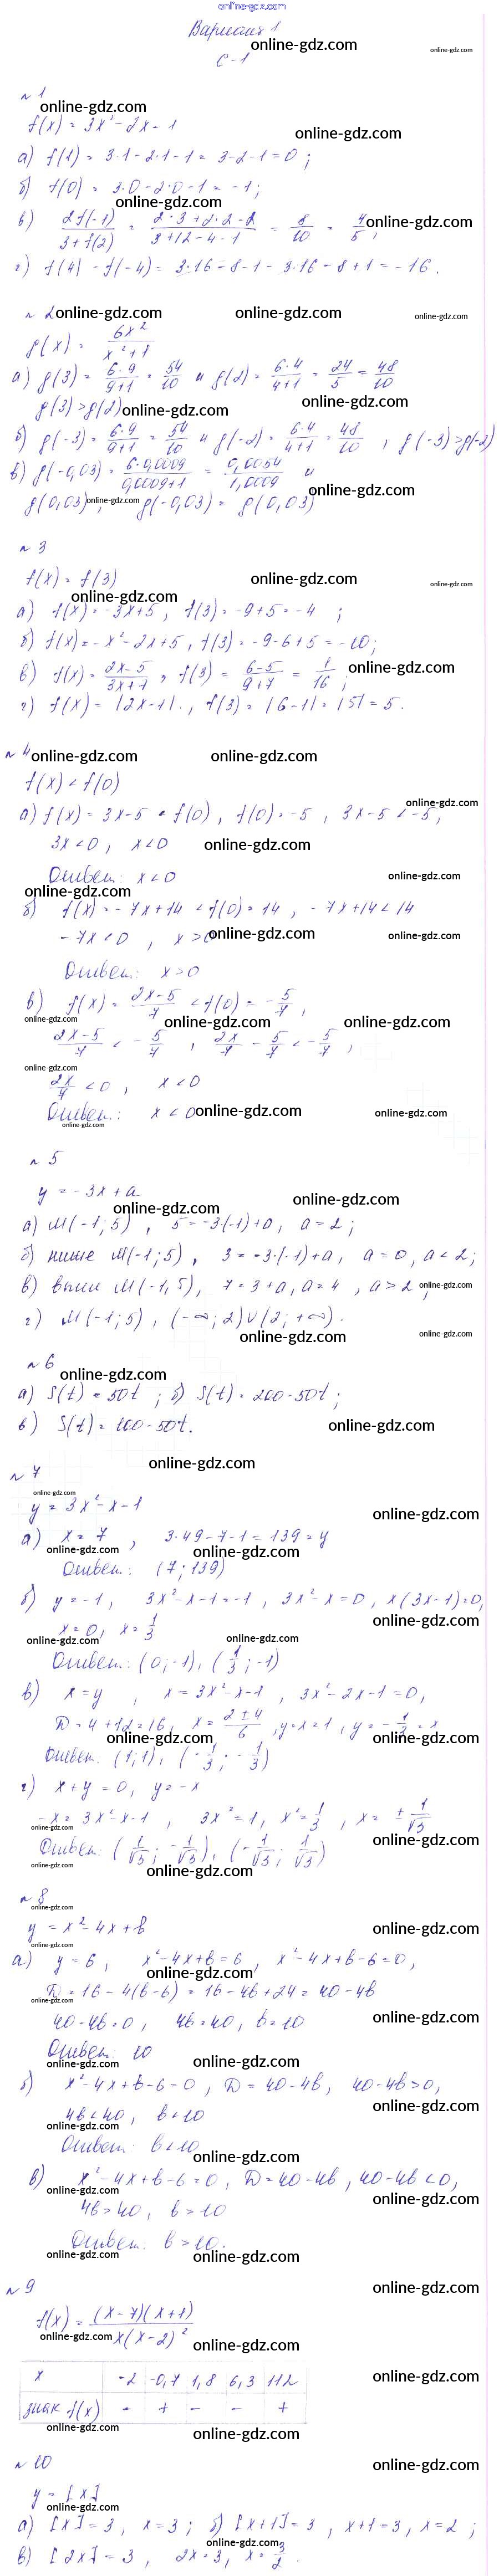 online-gdz.com
Вариант 1
online-gdz.com online-gdz.com
С-1
№ 1
online-gdz.com
f(x) = 3x² - 2x - 1
online-gdz.com
а) f(1) = 3·1 - 2·1 - 1 = 3 - 2 - 1 = 0 ;
б) f(0) = 3·0 - 2·0 - 1 = -1 ;
online-gdz.com
в) 2f(-1) / 3 + f(2) = 2·3 + 2·2 - 2 / 3 + 12 - 4 - 1 = 8/10 = 4/5 ; online-gdz.com
г) f(4) - f(-4) = 3·16 - 8 - 1 - 3·16 - 8 + 1 = -16 .
№ 2 online-gdz.com online-gdz.com online-gdz.com
g(x) = 6x² / x² + 1
а) g(3) = 6·9 / 9+1 = 54/10 и g(2) = 6·4 / 4+1 = 24/5 = 48/10
g(3) > g(2) online-gdz.com online-gdz.com
б) g(-3) = 6·9 / 9+1 = 54/10 и g(-2) = 6·4 / 4+1 = 48/10 , g(-3) > g(-2)
в) g(-0,03) = 6·0,0009 / 0,0009+1 = 0,0054 / 1,0009 и
online-gdz.com
g(0,03) , online-gdz.com g(-0,03) = g(0,03)
№ 3
f(x) = f(3) online-gdz.com online-gdz.com
online-gdz.com
а) f(x) = -3x + 5 , f(3) = -9 + 5 = -4 ;
б) f(x) = -x² - 2x + 5 , f(3) = -9 - 6 + 5 = -10 ;
в) f(x) = 2x - 5 / 3x + 7 , f(3) = 6 - 5 / 9 + 7 = 1/16 ; online-gdz.com
г) f(x) = |2x - 1| , f(3) = |6 - 1| = |5| = 5 .
№ 4 online-gdz.com online-gdz.com
f(x) < f(0)
online-gdz.com
а) f(x) = 3x - 5 < f(0) , f(0) = -5 , 3x - 5 < -5 ,
3x < 0 , x < 0 online-gdz.com
Ответ: x < 0 online-gdz.com
online-gdz.com
б) f(x) = -7x + 14 < f(0) = 14 , -7x + 14 < 14
-7x < 0 , x > 0 online-gdz.com online-gdz.com
Ответ: x > 0
в) f(x) = 2x - 5 / 7 < f(0) = -5/7 ,
online-gdz.com online-gdz.com online-gdz.com
2x - 5 / 7 < -5/7 , 2x/7 - 5/7 < -5/7 ,
online-gdz.com
2x/7 < 0 , x < 0
Ответ: x < 0 online-gdz.com online-gdz.com
online-gdz.com
№ 5
y = -3x + a
online-gdz.com online-gdz.com
а) M(-1; 5) , 5 = -3·(-1) + a , a = 2 ;
б) ниже M(-1; 5) , 3 = -3·(-1) + a , a = 0 , a < 2 ;
в) выше M(-1, 5) , 7 = 3 + a , a = 4 , a > 2 ; online-gdz.com
г) M(-1; 5) , (-∞; 2) ∪ (2; +∞) .
online-gdz.com online-gdz.com
№ 6
online-gdz.com
а) S(t) = 50t ; б) S(t) = 200 - 50t ;
в) S(t) = 100 - 50t . online-gdz.com
№ 7 online-gdz.com
online-gdz.com
y = 3x² - x - 1 online-gdz.com
а) x = 7 , 3·49 - 7 - 1 = 139 = y
online-gdz.com online-gdz.com
Ответ: (7; 139)
б) y = -1 , 3x² - x - 1 = -1 , 3x² - x = 0 , x(3x - 1) = 0 ,
online-gdz.com
x = 0 , x = 1/3
online-gdz.com online-gdz.com
Ответ: (0; -1) , (1/3; -1)
в) x = y , x = 3x² - x - 1 , 3x² - 2x - 1 = 0 ,
D = 4 + 12 = 16 , x = 2 ± 4 / 6 , y = x = 1 , y = -1/3 = x
online-gdz.com online-gdz.com online-gdz.com
Ответ: (1; 1) , (-1/3; -1/3)
г) x + y = 0 , y = -x
-x = 3x² - x - 1 , 3x² = 1 , x² = 1/3 , x = ± 1/√3
online-gdz.com online-gdz.com
Ответ: (1/√3; -1/√3) , (-1/√3; 1/√3)
online-gdz.com online-gdz.com
№ 8
online-gdz.com
y = x² - 4x + b online-gdz.com
online-gdz.com
а) y = 6 , x² - 4x + b = 6 , x² - 4x + b - 6 = 0 ,
online-gdz.com
D = 16 - 4(b - 6) = 16 - 4b + 24 = 40 - 4b
online-gdz.com
40 - 4b = 0 , 4b = 40 , b = 10 online-gdz.com
Ответ: 10
online-gdz.com online-gdz.com
б) x² - 4x + b - 6 = 0 , D = 40 - 4b , 40 - 4b > 0 ,
online-gdz.com
4b < 40 , b < 10
online-gdz.com
Ответ: b < 10
online-gdz.com
в) x² - 4x + b - 6 = 0 , D = 40 - 4b , 40 - 4b < 0 ,
online-gdz.com online-gdz.com
4b > 40 , b > 10
Ответ: b > 10 .
online-gdz.com online-gdz.com
№ 9 online-gdz.com
f(x) = (x - 7)(x + 1) / x(x - 2)²
online-gdz.com online-gdz.com
x -2 -0,7 1,8 6,3 112 online-gdz.com
знак f(x) - + - - +
online-gdz.com online-gdz.com
№ 10 online-gdz.com
y = [x]
online-gdz.com
а) [x] = 3 , x = 3 ; б) [x + 1] = 3 , x + 1 = 3 , x = 2 ;
online-gdz.com
в) [2x] = 3 , 2x = 3 , x = 3/2 .